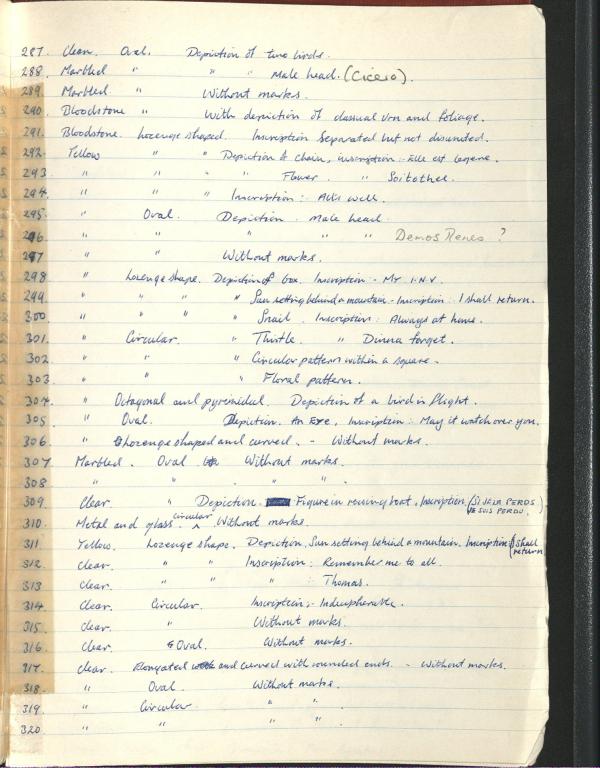 287. Clear. Oval. Depiction of two birds.
288. Marbled " " " Male head. (Cicero).
289. Marbled " Without marks.
290. Bloodstone " With depiction of classical urn and foliage.
291. Bloodstone. Lozenge shaped. Inscription Separated but not disunited.
292. Yellow " " Depiction of Chain, inscription: Elle est legere.
293. " " " " Flower. " Soitethee.
294. " " " Inscription: All's well.
295. " Oval. Depiction. Male head.
296 " " " " " Demosthenes ?
297 " " Without marks.
298 " Lozenge shape. Depiction of box. Inscription - Mr I.N.V.
299 " " " " Sun setting behind a mountain - Inscription: I shall return.
300 " " " " Snail. Inscription: Always at home.
301. " Circular. " Thistle. " Dinna forget.
302. " " " Circular pattern within a square.
303. " " " Floral pattern.
304. " Octagonal and pyramidal. Depiction of a bird in flight.
305 " Oval. Depiction. An Eye, Inscription: May it watch over you.
306. " Lozenge shaped and curved. - Without marks.
307 Marbled. Oval Without marks.
308 " " " " .
309 Clear. " Depiction. Figure in rowing boat, Inscription (SI JE LA PERDS JE SUIS PERDU.)
310. Metal and glass. circular Without marks.
311 Yellow. Lozenge shape. Depiction, Sun setting behind a mountain. Inscription (I shall return
312 Clear. " " Inscription: Remember me to all.
313 Clear. " " " : Thomas.
314 Clear. Circular. Inscription:- Indecipherable.
315 Clear. " Without marks.
316 Clear. Oval. Without marks.
317 Clear. Elongated and curved with rounded ends. - Without marks.
318 " Oval. Without marks.
319 " Circular " " .
320 " " " " .